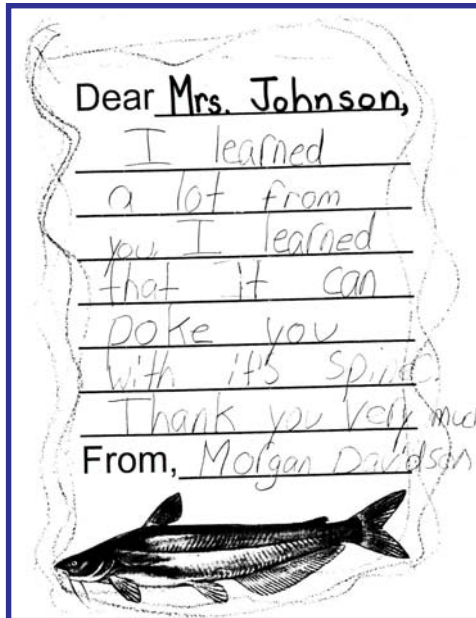 Dear Mrs. Johnson,
I learned
a lot from
you. I learned
that It can
poke you
with it's spine.
Thank you very much
From, Morgan Davidson